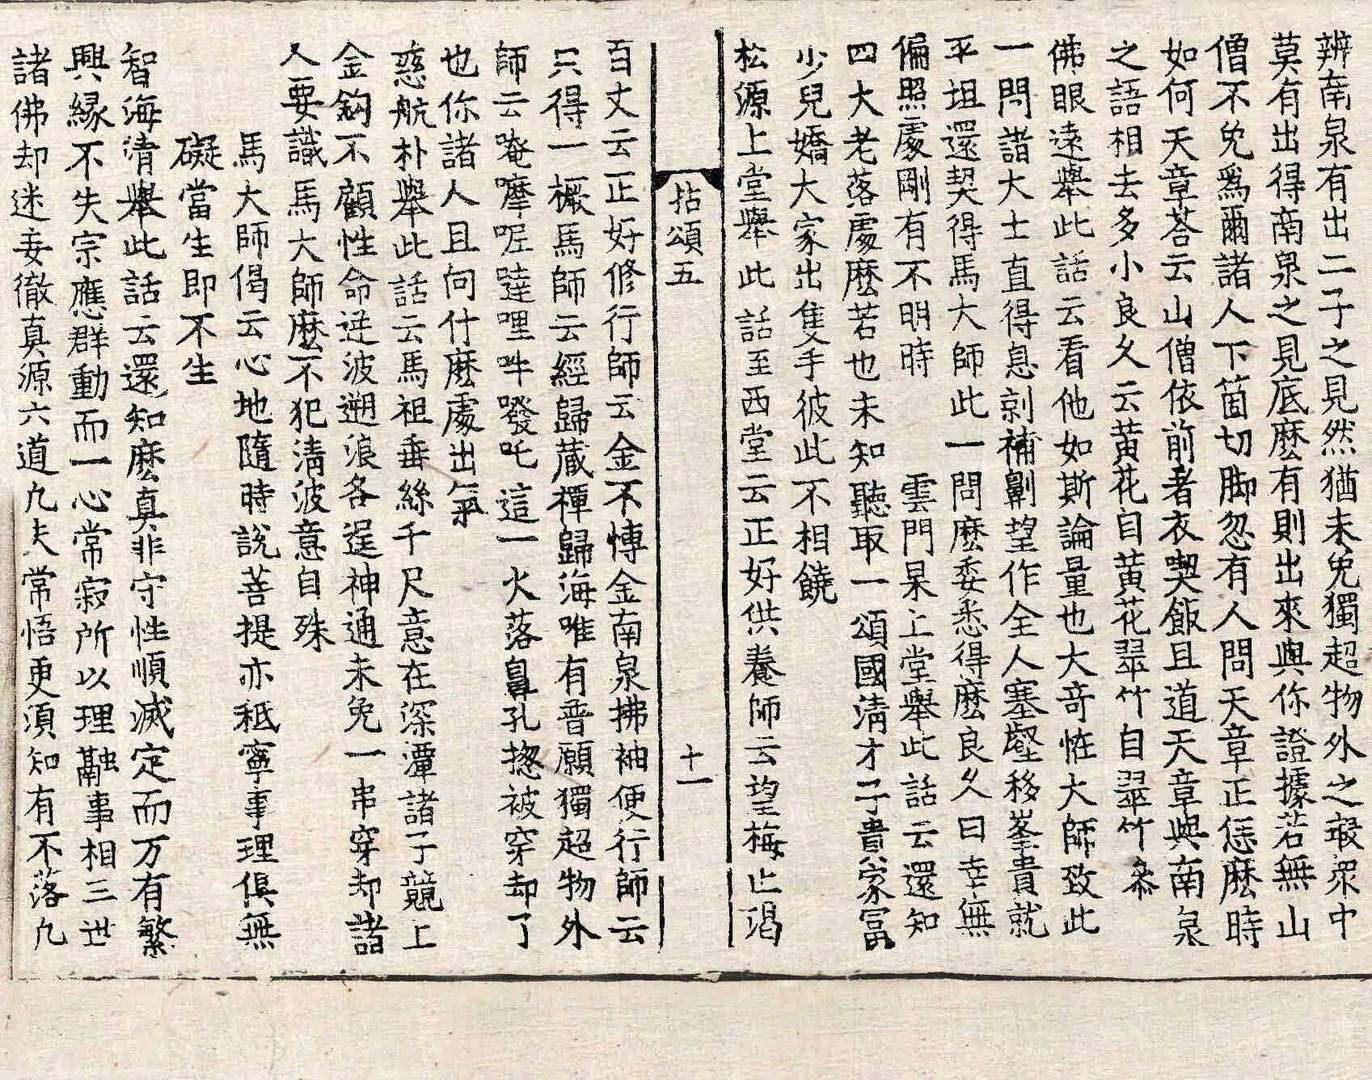 辨南泉有出二子之見然猶未免獨超物外之敭衆中
莫有出得南泉之見底麽有則出來與你證據若無山
僧不免爲爾諸人下箇切脚忽有人問天章正恁麽時
如何天章荅云山僧依前者衣喫飯且道天章與南泉
之語相去多小良久云黃花自黃花翠竹自翠竹叅
佛眼遠舉此話云看他如斯論量也大竒恠大師致此
一問諸大士直得息剠補劓望作全人塞壑移峯貴就
平坦還契得馬大師此一問麽委悉得麽良久曰幸無
偏照處剛有不明時　雲門杲上堂舉此話云還知
四大老落處麽若也未知聽取一頌國淸才子貴家冨
少兒嬌大家出隻手彼此不相饒
松源上堂舉此話至西堂云正好供養師云望梅止渴
拈頌五　十一
百丈云正好修行師云金不博金南泉拂袖便行師云
只得一橛馬師云經歸藏禪歸海唯有普願獨超物外
師云唵嚤呢薘哩吽癹吒這一火落鼻孔揔被穿却了
也你諸人且向什麽處出氣
慈航朴舉此話云馬祖垂絲千尺意在深潭諸子競上
金鈎不顧性命逆波遡浪各逞神通未免一串穿却諸
人要識馬大師麽不犯淸波意自殊
馬大師偈云心地隨時說菩提亦秪寧事理俱無
礙當生即不生
智海淸舉此話云還知麽眞非守性順滅定而万有繁
興緣不失宗應群動而一心常寂所以理融事相三世
諸佛却迷妄徹眞源六道凡夫常悟更須知有不落凡